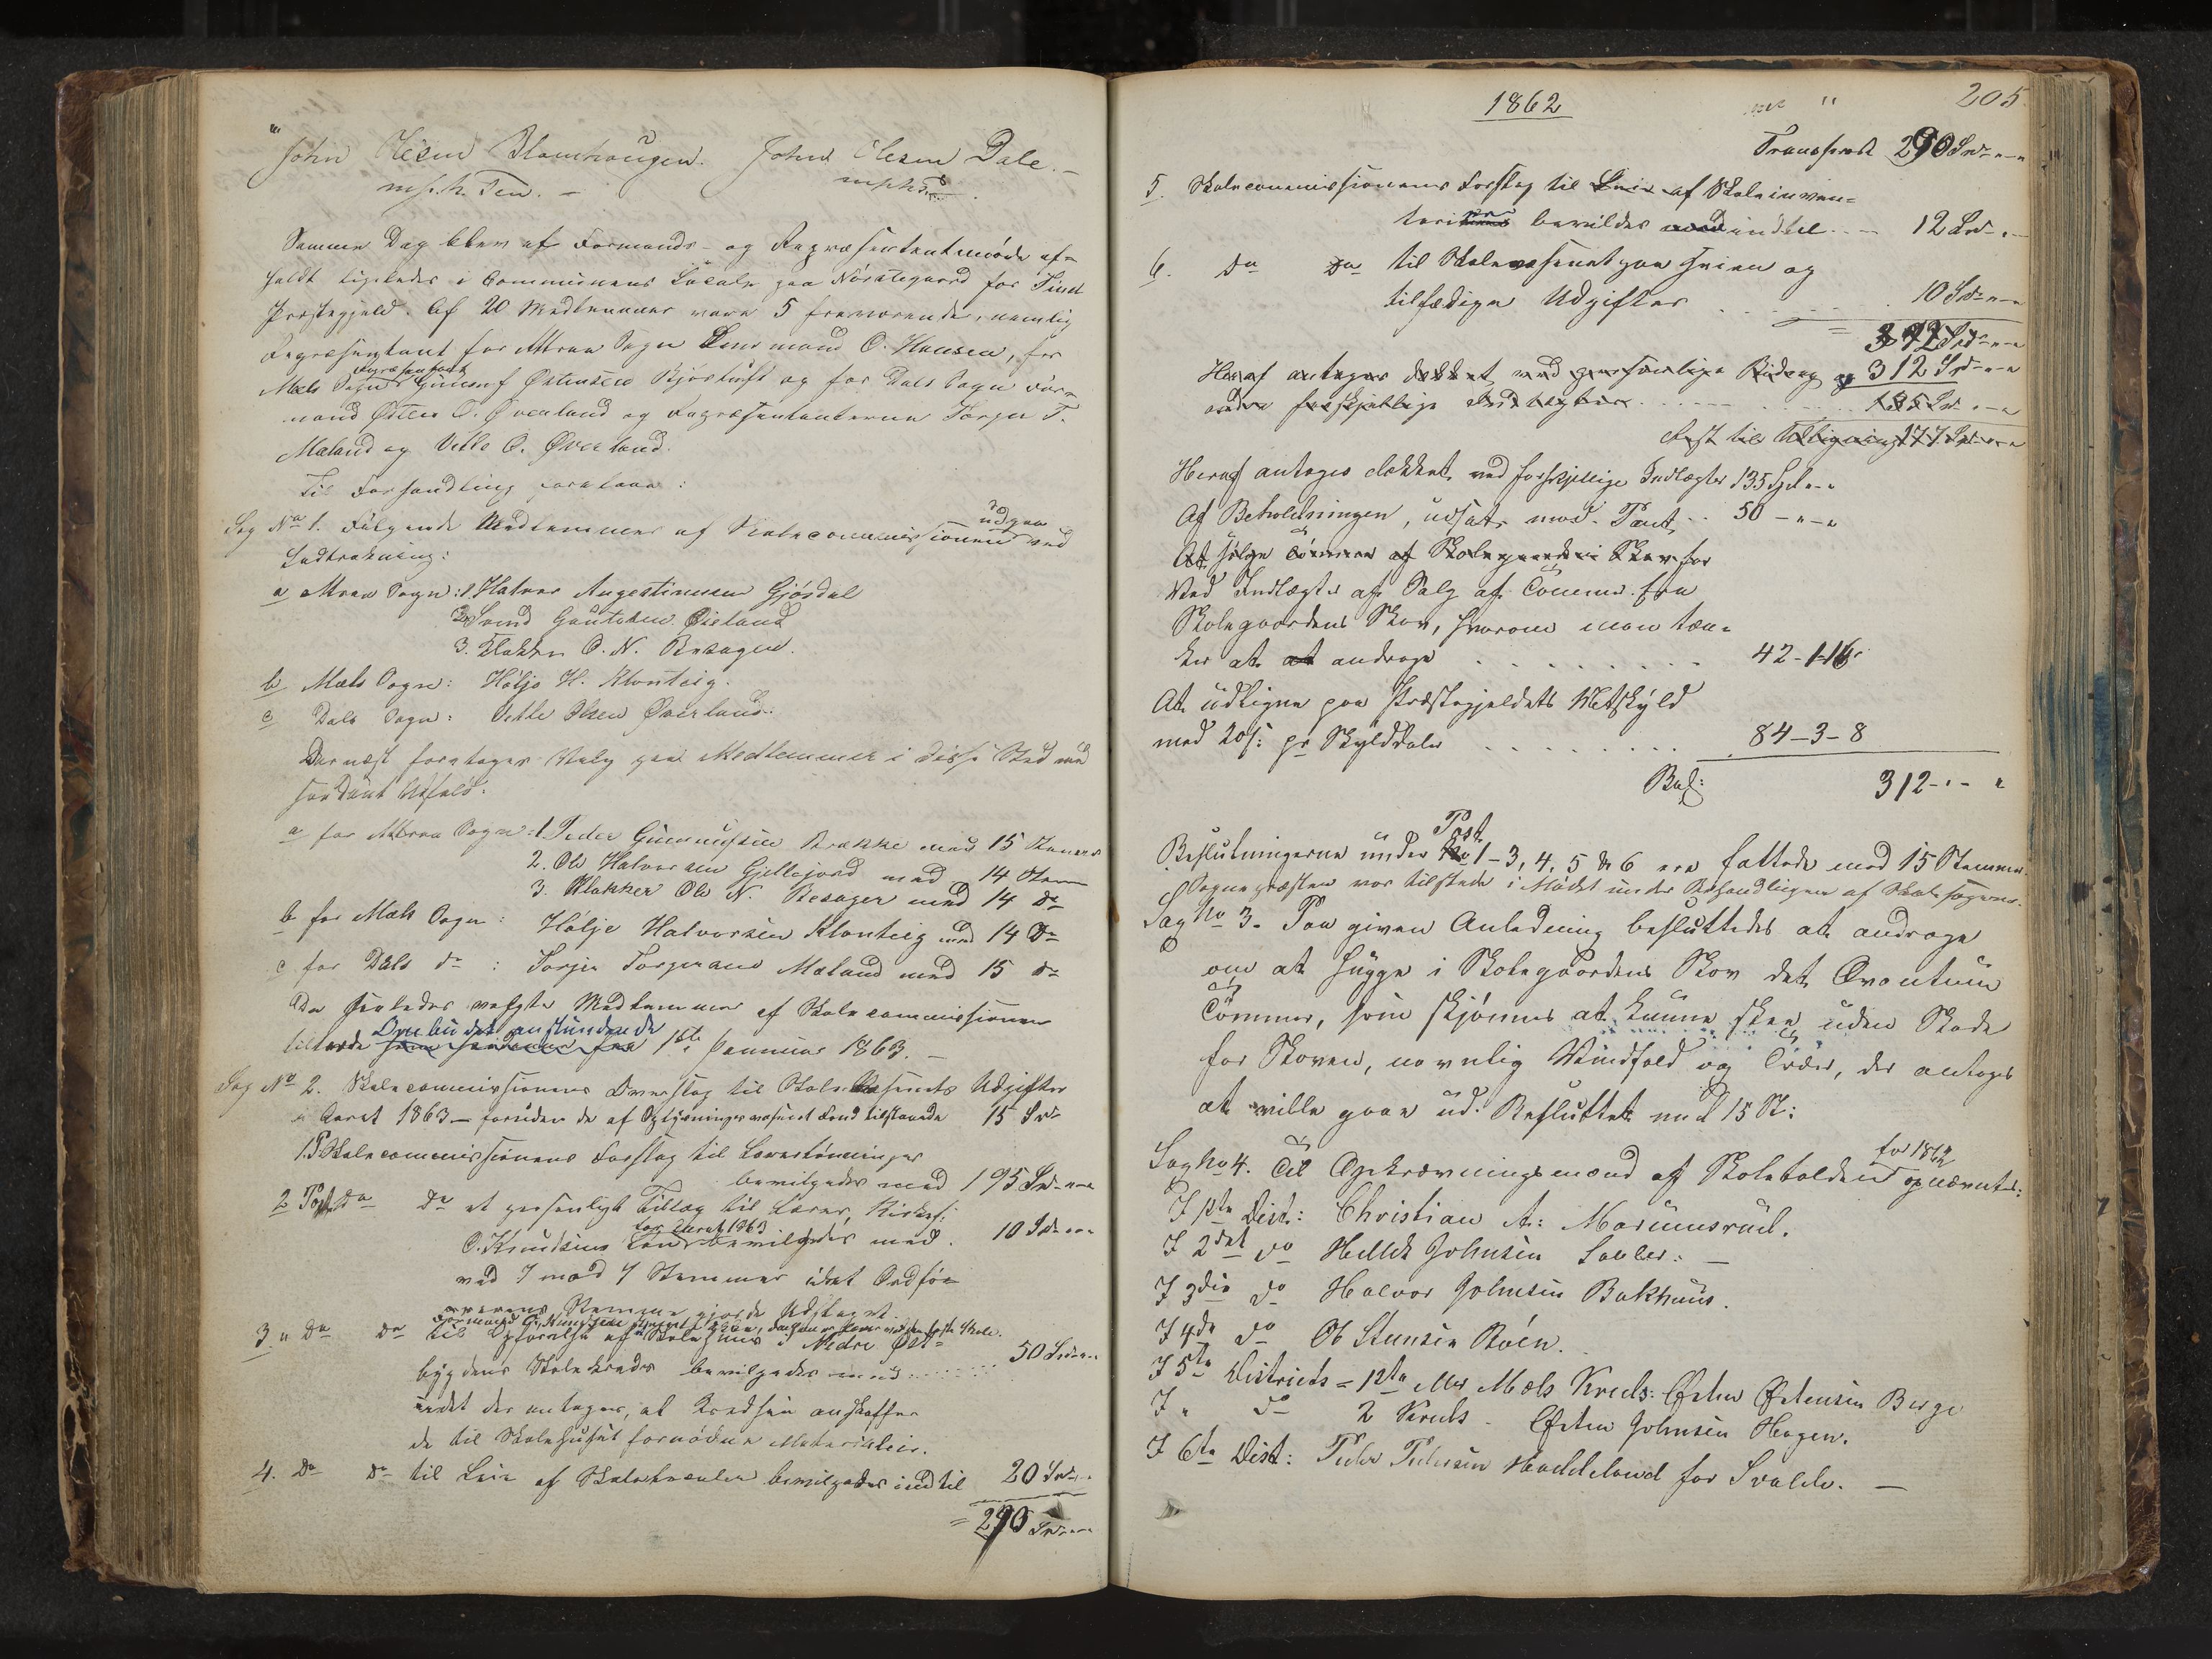 John Olesen Blomhougen. John Olesen Dale.
m. p. h. Pen. –
Samme Dag blev af Formands- og Repræsentantmøde af-
holdt ligeledes i Communens Locale paa Nørstegaard for Tinds
Præstegjeld. Af 20 Medlemmer vare 5 fraværende, nemlig
Repræsentant for Attraa Sogn Lensmand O. Hansen, for
Mæls Sogn Repræsentant Gunnuf Østensen Bjørtuft og for Dals Sogn For-
mand Østen O. Øverland og Repræsentanterne Torger T.
Mæland og Vetle O. Øverland.
Til Forhandling foretoges:
Sag No 1. Følgende Medlemmer af Skolecommissionen udgaa ved
Lodtrækning:
a Attraa Sogn: 1. Halvor Augestinusen Gjøsdal
2. Svend Gøutesen Øieland
3. Klokker O. N. Besager.
b Mæls Sogn: Høljo H. Klonteig.
c Dals Sogn: Vetle Olsen Øverland.
Dernæst foretoges Valg paa Medlemmer i disses Sted med
saadant Udfald:
a for Attraa Sogn: 1. Peder Gunnufsen Brakke med 15 Stemmer
2. Ole Halvorsen Gjellejord med 14 Stem
3. Klokker Ole N. Besager med 14 Do
b for Mæls Sogn: Høljo Halvorsen Klonteig med 14 Do
c for Dals do: Torjer Torjersen Mæland med 15 do
De saaledes valgte Medlemmer af Skolecommissionen
tiltræde Ombudet anstundende 1ste Januar 1863. –
Sag No 2. Skolecommissionens Overslag til Skolevæsenets Udgifter
i Aaret 1863 – foruden de af Oplysningsvæsenets Fond tilstaaede 15 Spd
1. P. Skolecommissionens Forslag til Lærerlønninger
bevilgedes med 195 Spd. " - "
2 Post Do Do et personligt Tillæg til Lærer, Kirkes:
O. Knudsens Løn for Aaret 1863 bevilgedes med. 10 Spd " - "
ved 7 mod 7 Stemmer idet Ordfø-
rerens Stemme gjorde Udslaget.
3. " Do Do til Opførelse af Skolehuus i Nedre Øst-
bygdens Skolekreds bevilgedes med ..... 50 Spd " - "
indet der antages, at Kredsen anskaffer
de til Skolehuset fornødne Materialier.
4. Do Do til Leie af Skolelocaler bevilgedes indtil 20 Spd "
= 290 Spd " - "
1862 205
Transport 290 Spd " - "
5. Skolecommissionens Forslag til Leie af Skoleinven-
tari bevildes indtil .. 12 Spd - " -
6. Do Do til Skolevæsenet paa Frien og
tilfældige Udgifter ..... 10 Spd " - "
= 312 Spd " - "
Heraf antages dekket ved personlige Bidrag og 312 Spd " - "
andre forskjellige Indtægter ..... 135 Spd " - "
Rest til Udligning 177 Spd " - "
Heraf antages dækket ved forskjellige Indtægter 135 Spd " - "
Af Beholdningen, udsat mod Pant .. 50 - " - "
At sælge Tømmer af Skolegaardens Skov for
Ved Indtægter af Salg af Tømmer fra
Skolegaardens Skov, hvorom man tæn-
ker at at andrage ......... 42 - 1 - 16
At udligne paa Præstegjeldets Matskyld
med 20 s: pr Skylddaler ......... 84 - 3 - 8
Bal: 312 - " - "
Beslutningerne under Post 1-3, 4, 5 & 6 ere fattede med 15 Stemmer.
Sognepræsten var tilstede i Mødet under Behandlingen af Skolesagerne.
Sag No 3. Paa given Anledning besluttedes at andrage
om at hugge i Skolegaardens Skov det Qvantum
Tømmer, som skjønnes at kunne skee uden Skade
for Skoven, navnlig Vindfald og Træer, der antages
at ville gaae ud. Besluttet med 15 St:
Sag No 4. Til Opkrævningsmænd af Skoletolden for 1862 opnævntes:
I 1ste Dist: Christian A: Marumsrud.
I 2det do Hellek Johnsen Saaler: –
I 3die do Halvor Johnsen Bakhuus.
I 4de do Ole Steensen Bøen.
I 5te Districts = 1ste eller Mæls Kreds: Østen Østensen Berge
I " do 2 Kreds – Østen Johnsen Hagen.
I 6te Dist: Peder Pedersen Haddeland for Svaddе. –